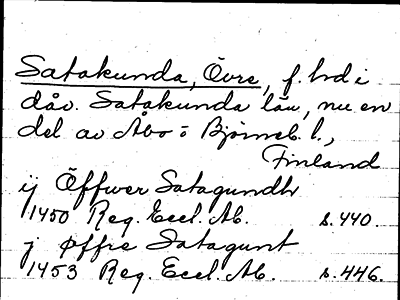 Satakunda, Övre, f. hrd i
dåv. Satakunda län, nu en
del av Åbo o Björneb. l.,
Finland
ij Öffwer Satagundh
1450 Reg. Eccl. Ab. s. 440.
j øffre Satagunt
1453 Reg. Eccl. Ab. s. 446.